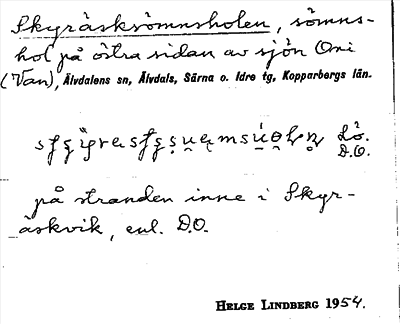 Skyråsksömnsholen, sömns-
hol på östra sidan av sjön Oni
(Van), Älvdalens sn, Älvdals, Särna o. Idre tg, Kopparbergs län.
Lö.
D.O.
på stranden inne i Skyr-
åskvik, enl. D.O.
HELGE LINDBERG 1954.